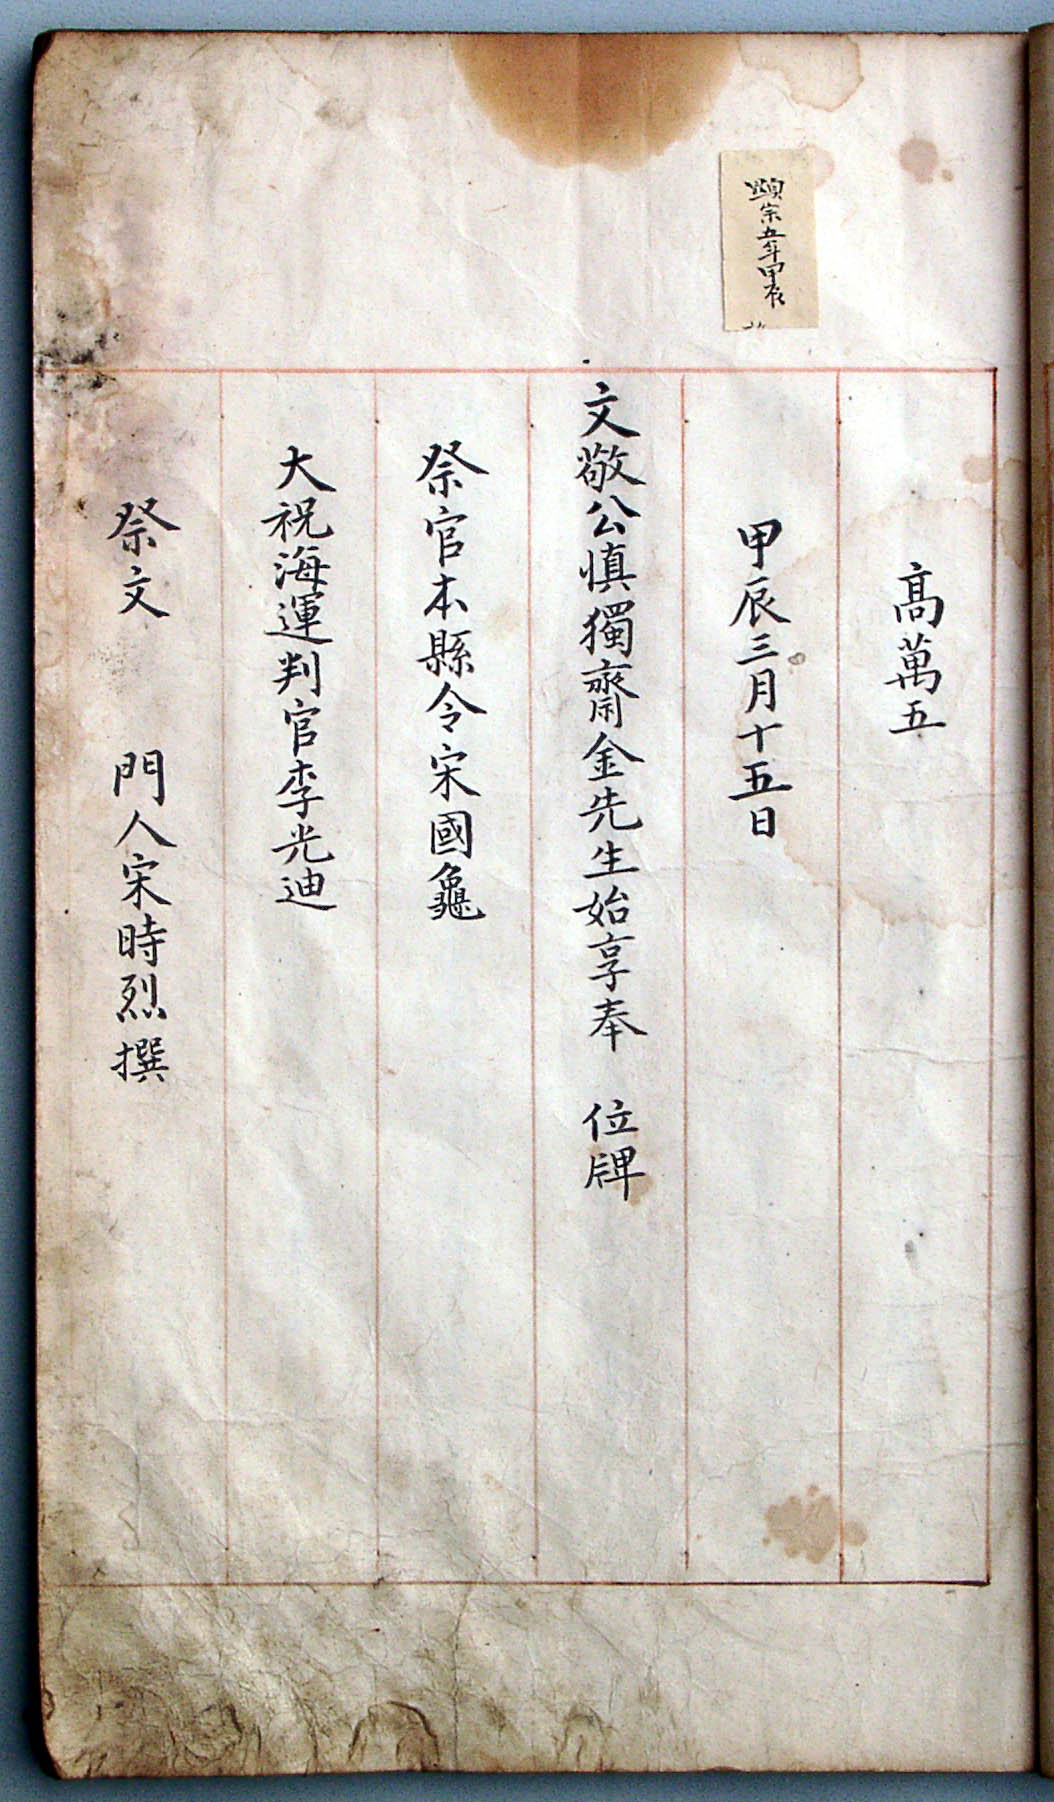 顯宗五年甲辰
高萬五
甲辰三月十五日
文敬公愼獨齋金先生始享奉　位牌
祭官本縣令宋國龜
大祝海運判官李光迪
祭文　門人宋時烈撰